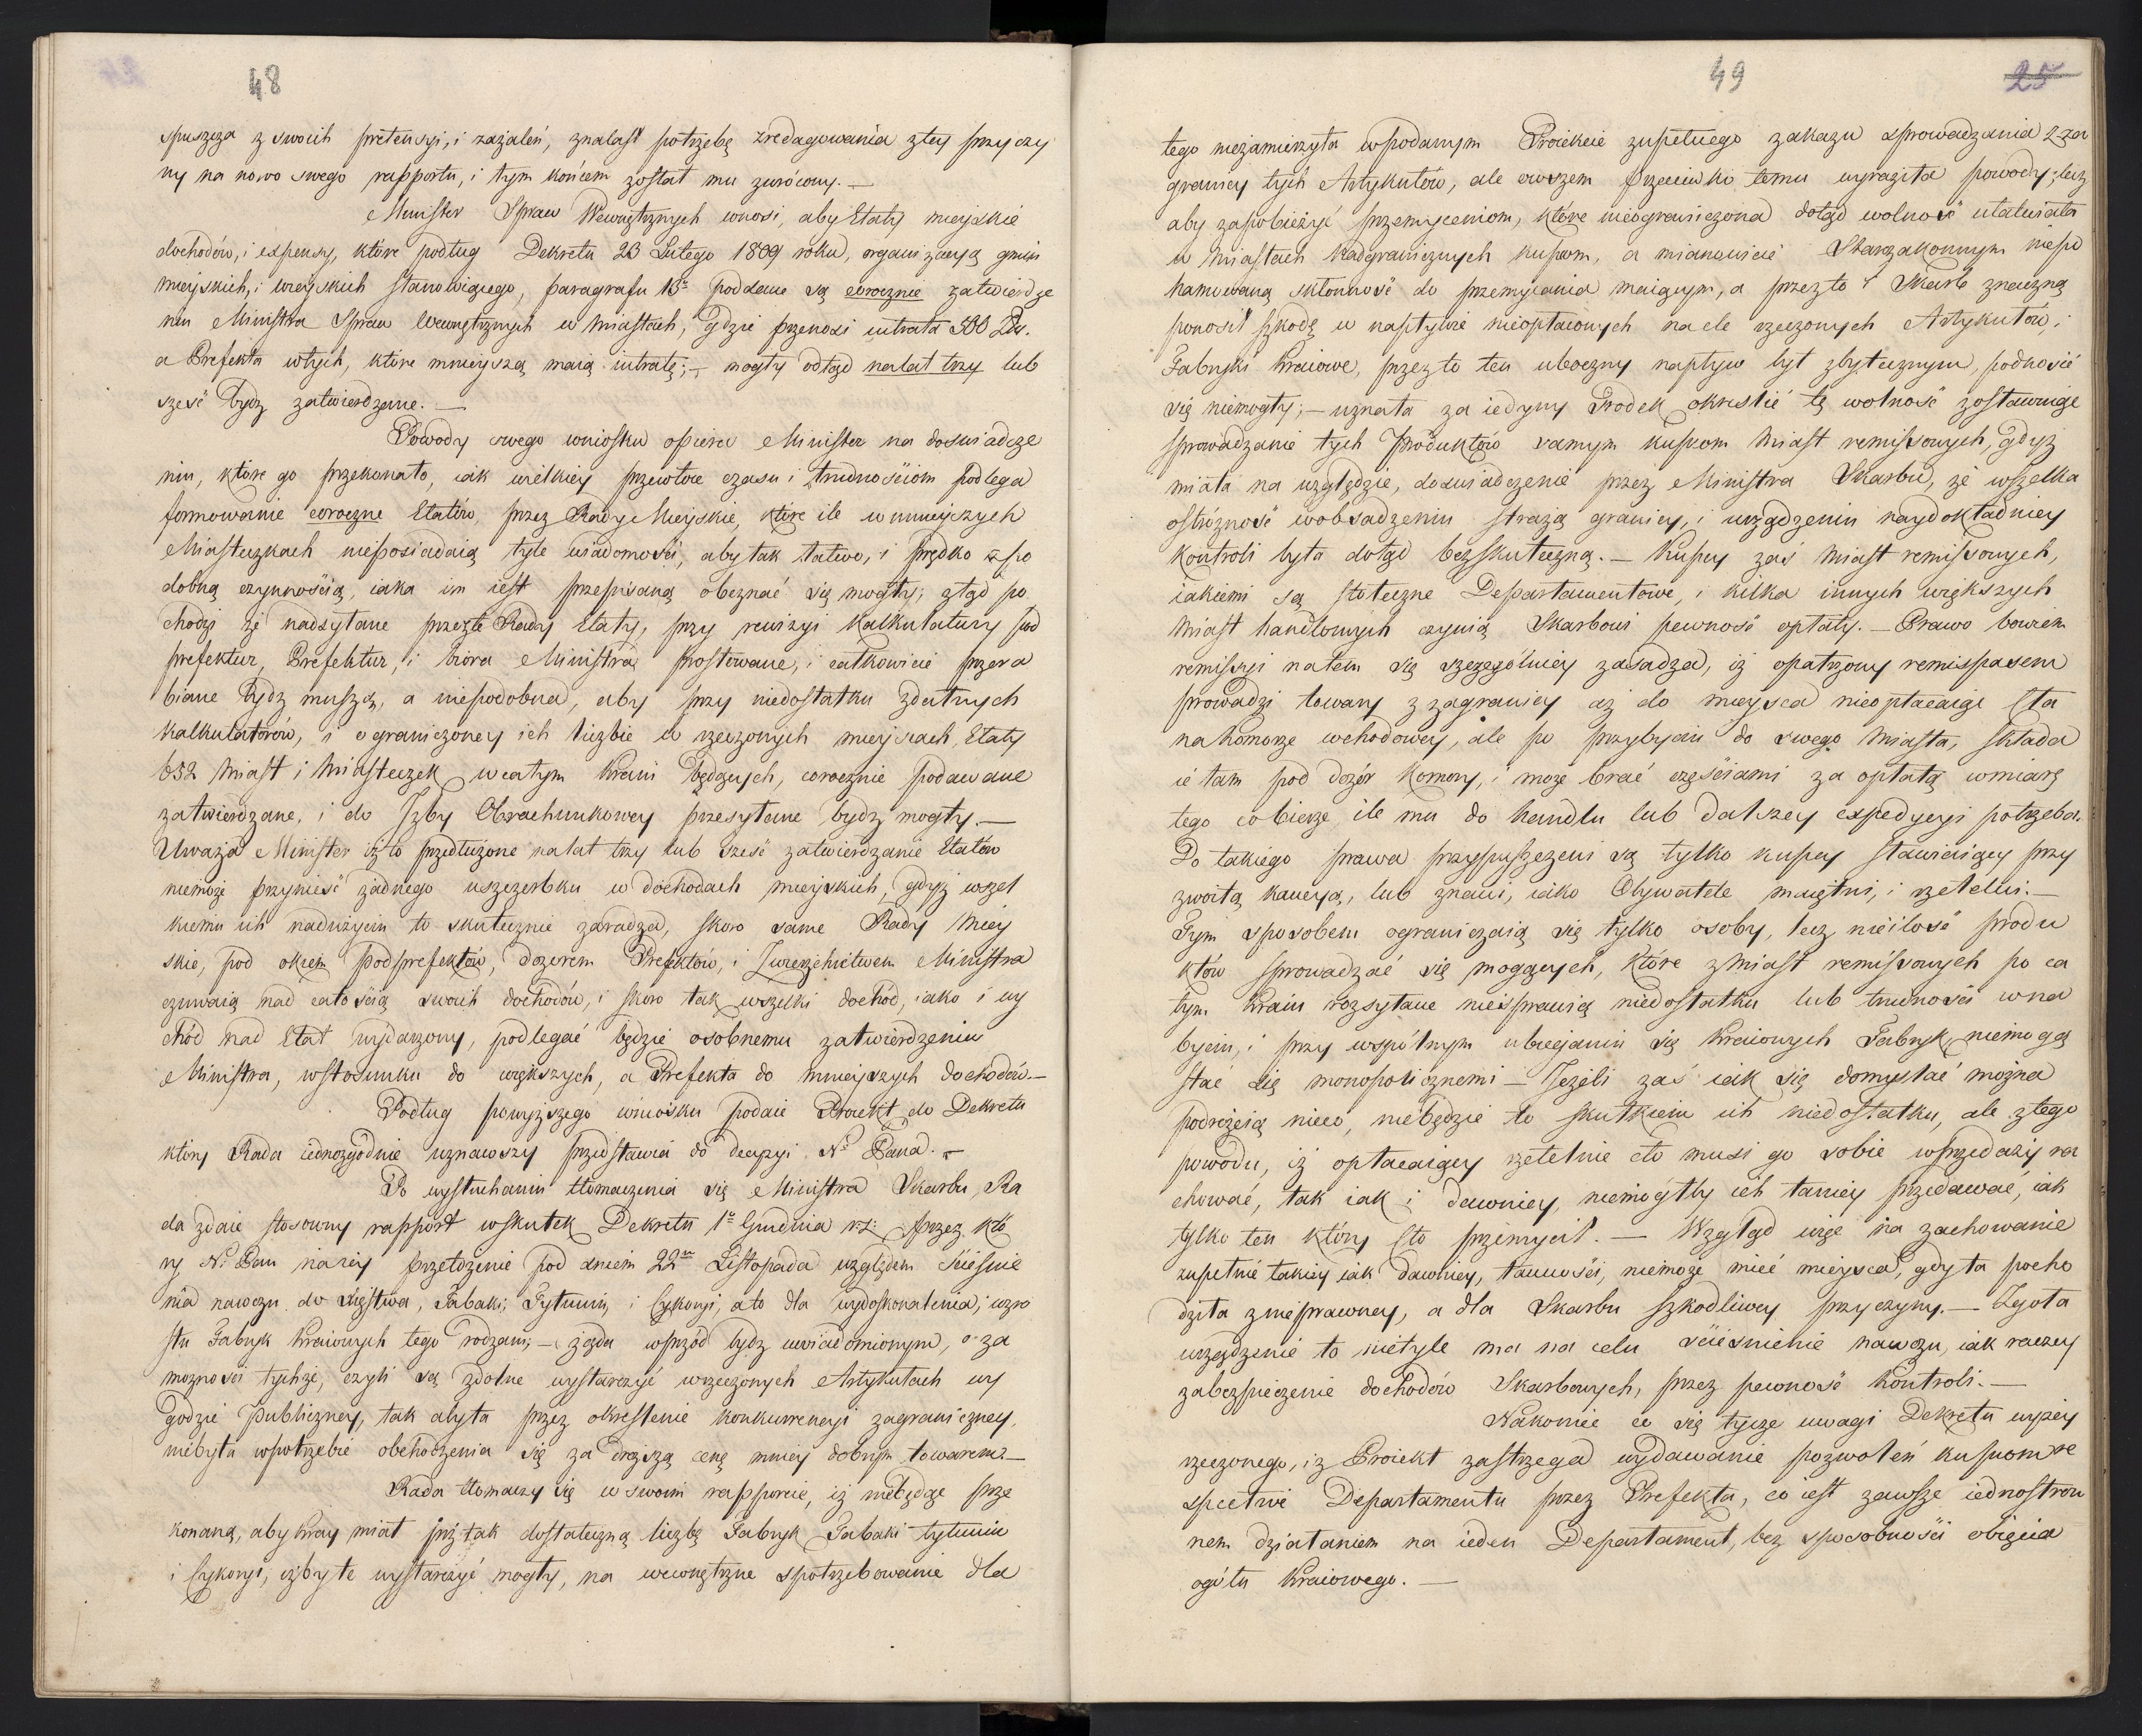 48
spuszcza z swoich pretensyi, i zażaleń, znalazł potrzebę zredagowania z tey przyczy
ny na nowo swego rapportu, i tym końcem został mu zwrócony. —
Minister Spraw Wewnętrznych wnosi, aby Etaty mieyskie
dochodów, i expensy, które podług Dekretu 23 Lutego 1809 roku, organizacyą gmin
mieyskich, i wieyskich stanowiącego, paragrafu 13º poddane są corocznie zatwierdze
niu Ministra Spraw Wewnętrznych w Miastach, gdzie przenosi intrata 500 Zł.
a Prefekta w tych, które mnieyszą maią intratę; — mogły odtąd na lat trzy lub
sześć bydź zatwierdzane. —
Powody swego wniosku opiera Minister na doświadcze
niu, które go przekonało, iak wielkiey przewłoce czasu i trudnościom podlega
formowanie coroczne Etatów, przez Rady Mieyskie, które ile w mnieyszych
Miasteczkach nieposiadaią tyle wiadomości, aby tak łatwo, i prędko z po
dobną czynnością, iaka im iest przepisaną obeznać się mogły; ztąd po
chodzi że nadsyłane przez te Rady Etaty, przy rewizyi Kalkulatury Pod
prefektur, Prefektur, i biora Ministra prostowane, i całkowicie przera
biane bydź muszą, a niepodobna, aby przy niedostatku zdatnych
Kalkulatorów, i ograniczoney ich liczbie w rzeczonych mieyscach, Etaty
632 Miast i Miasteczek w całym Kraiu będących, corocznie podawane
zatwierdzane, i do Izby Obrachunkowey przesyłane bydź mogły. —
Uważa Minister iż to przedłużone na lat trzy lub sześć zatwierdzanie Etatów
niemoże przynieść żadnego uszczerbku w dochodach mieyskich, gdyż wszel
kiemu ich nadużyciu to skutecznie zaradza, skoro same Rady Miey
skie, pod okiem Podprefektów, dozorem Prefektów, i Zwierzchnictwem Ministra
czuwaią nad całością swoich dochodów, i skoro tak wszelki dochód, iako i wy
chód nad Etat wydarzony, podlegać będzie osobnemu zatwierdzeniu
Ministra, w stosunku do większych, a Prefekta do mnieyszych dochodów. —
Podług powyższego wniosku podaie Proiekt do Dekretu
który Rada iednozgodnie uznawszy przedstawia do decyzyi N. Pana. —
Po wysłuchaniu tłomaczenia się Ministra Skarbu, Ra
da zdaie stosowny rapport w skutek Dekretu 1º Grudnia r. z. przez któ
ry N. Pan na iey przełożenie pod dniem 22m Listopada względem ścieśnie
nia nawozu do Xięstwa, Tabaki, Tytuniu, i Cykoryi, a to dla wydoskonalenia, i wzro
stu Fabryk Kraiowych tego rodzaiu; — żąda wprzód bydź uwiadomionym, o za
możności tychże, czyli są zdolne wystarczyć w rzeczonych Artykułach wy
godzie publiczney, tak ażyta przez okreslenie konkurrencyi zagraniczney,
niebyła w potrzebie obchodzenia się za droższą cenę mniey dobrym towarem. —
Rada tłomaczy się w swoim rapporcie, iż niebędąc prze
konaną, aby Kray miał iuż tak dostateczną liczbę Fabryk Tabaki tytuniu
i Cykoryi, iżby te wystarczyć mogły, na wewnętrzne spotrzebowanie dla
49 25
tego niezamierzyła w podanym Proiekcie zupełnego zakazu sprowadzania z za
granicy tych Artykułów, ale owszem przeciwko temu wyraziła powody; lecz
aby zapobieżyć przemyceniom, które nieograniczona dotąd wolność ułatwiała
w Miastach Nadgranicznych kupcom, a mianowicie Starozakonnym niepo
hamowaną skłonność do przemycania maiącym, a przez to i Skarb znaczną
ponosił szkodę w napływie nieopłaconych na cle rzeczonych Artykułów, i
Fabryki Kraiowe, przez to ten uboczny napływ był zbytecznym, podnosić
się niemogły; — uznała za iedyny Srodek okreslić tę wolność zostawuiąc
sprowadzanie tych Produktów samym kupcom Miast remissowych, gdyż
miała na względzie, doświadczenie przez Ministra Skarbu, że wszelka
ostróżność w obsadzeniu strażą granicy, i urządzeniu naydokładniey
Kontroli była dotąd bezskuteczną. — Kupcy zaś Miast remissowych,
iakiemi są stołeczne Departamentowe, i kilka innych większych
Miast handlowych czynią Skarbowi pewność opłaty. — Prawo bowiem
remissyi na tem się szczególniey zasadza, iż opatrzony remispasem
prowadzi towary z zagranicy aż do mieysca nieopłacaiąc Cła
na Komorze wchodowey, ale po przybyciu do swego Miasta, składa
ie tam pod dozór Komory, i może brać częściami za opłatą w miarę
tego co bierze ile mu do handlu lub dalszey expedycyi potrzeba.
Do takiego prawa przypuszczeni są tylko kupcy stawiaiący przy
zwoitą kaucyą, lub znani, iako Obywatele maiętni, i rzetelni. —
Tym sposobem ograniczaią się tylko osoby, lecz nie ilość produ
któw sprowadzać się mogących, które z Miast remissowych po ca
łym Kraiu rozsyłane nie sprawią niedostatku lub trudności w na
byciu, i przy wspólnym ubieganiu się Kraiowych Fabryk, niemogą
stać się monopolicznemi — Jeżeli zaś iak się domyslać można
podrożeią nieco, niebędzie to skutkiem ich niedostatku, ale z tego
powodu, iż opłacaiący rzetelnie cło musi go sobie w przedaży ra
chować, tak iak i dawniey, niemógłby ich taniey przedawać, iak
tylko ten który cło przemycił. — Wzgląd więc na zachowanie
zupełnie takiey iak dawniey, tanności, niemoże mieć mieysca, gdy ta pocho
dziła z nieprawney, a dla Skarbu szkodliwey przyczyny. — Zgoła
urządzenie to nietyle ma na celu ścieśnienie nawozu, iak raczey
zabezpieczenie dochodów Skarbowych, przez pewność Kontroli. —
Nakoniec co się tycze uwagi Dekretu wyżey
rzeczonego, iż Proiekt zastrzega wydawanie pozwoleń kupcom re
spective Departamentu przez Prefekta, co iest zawsze iednostron
nem działaniem na ieden Departament, bez sposobności obięcia
ogółu Kraiowego. —